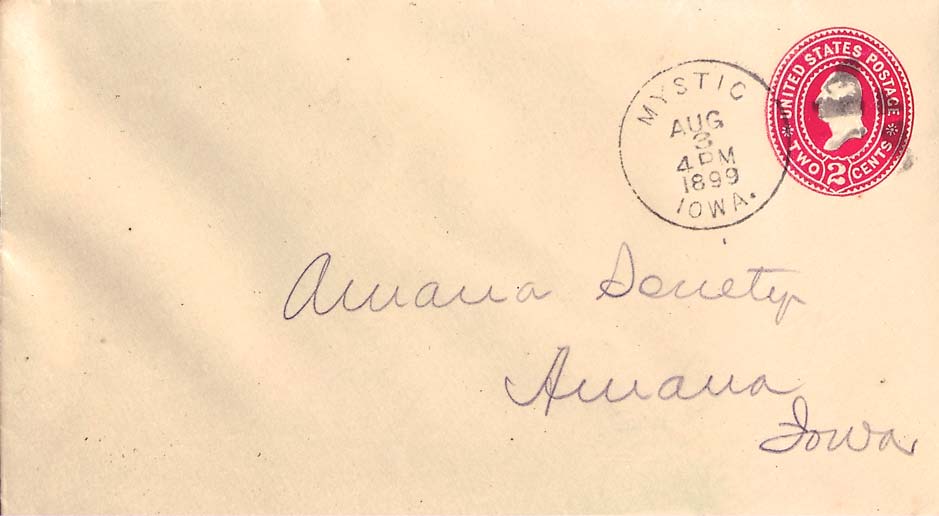 MYSTIC
AUG
3
4PM
1899
IOWA.
UNITED STATES POSTAGE
TWO 2 CENTS
Amana Society
Amana
Iowa